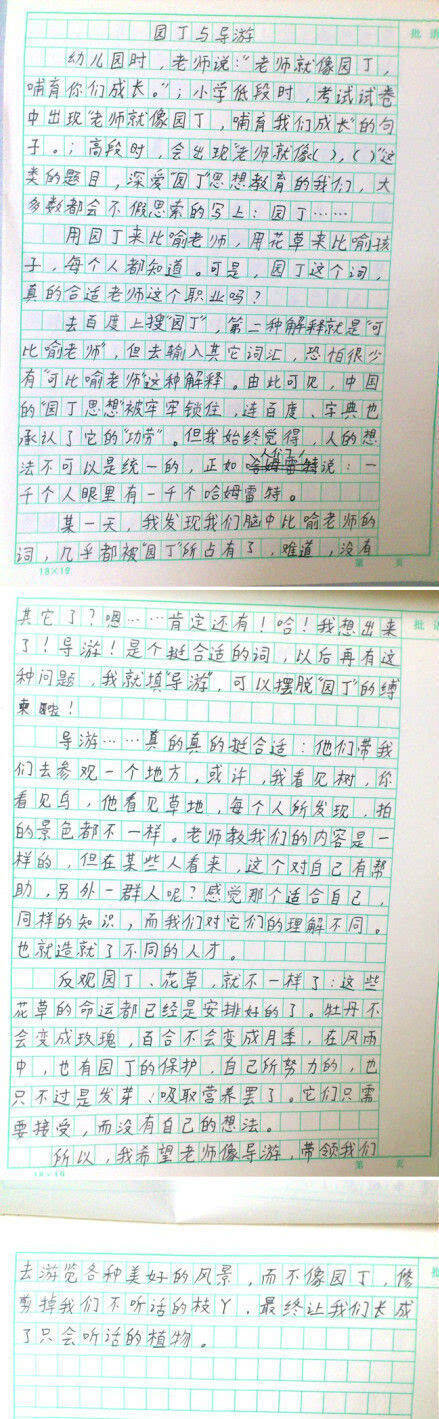 园丁与导游
幼儿园时，老师说："老师就像园丁，
哺育你们成长。"；小学低段时，考试试卷
中出现"老师就像园丁，哺育我们成长"的句
子。；高段时，会出现"老师就像（），（）"这
类的题目，深爱"园丁"思想教育的我们，大
多数都会不假思索的写上：园丁……
用园丁来比喻老师，用花草来比喻孩
子，每个人都知道。可是，园丁这个词，
真的合适老师这个职业吗？
去百度上搜"园丁"，第二种解释就是"可
比喻老师"，但去输入其它词汇，恐怕很少
有"可比喻老师"这种解释。由此可见，中国
的"园丁思想"被牢牢锁住，连百度、字典也
承认了它的"功劳"。但我始终觉得，人的想
法不可以是统一的，正如人们说：一
千个人眼里有一千个哈姆雷特。
某一天，我发现我们脑中比喻老师的
词，几乎都被"园丁"所占有了，难道，没有
18×19
第 页
其它了？嗯……肯定还有！哈！我想出来
了！导游！是个挺合适的词，以后再有这
种问题，我就填"导游"，可以摆脱"园丁"的缚
束啦！
导游……真的真的挺合适：他们带我
们去参观一个地方，或许，我看见树，你
看见鸟，他看见草地，每个人所发现、拍
的景色都不一样。老师教我们的内容是一
样的，但在某些人看来，这个对自己有帮
助，另外一群人呢？感觉那个适合自己，
同样的知识，而我们对它们的理解不同。
也就造就了不同的人才。
反观园丁、花草，就不一样了：这些
花草的命运都已经是安排好的了。牡丹不
会变成玫瑰，百合不会变成月季，在风雨
中，也有园丁的保护，自己所努力的，也
只不过是发芽、吸取营养罢了。它们只需
要接受，而没有自己的想法。
所以，我希望老师像导游，带领我们
第 页
去游览各种美好的风景，而不像园丁，修
剪掉我们不听话的枝丫，最终让我们长成
了只会听话的植物。